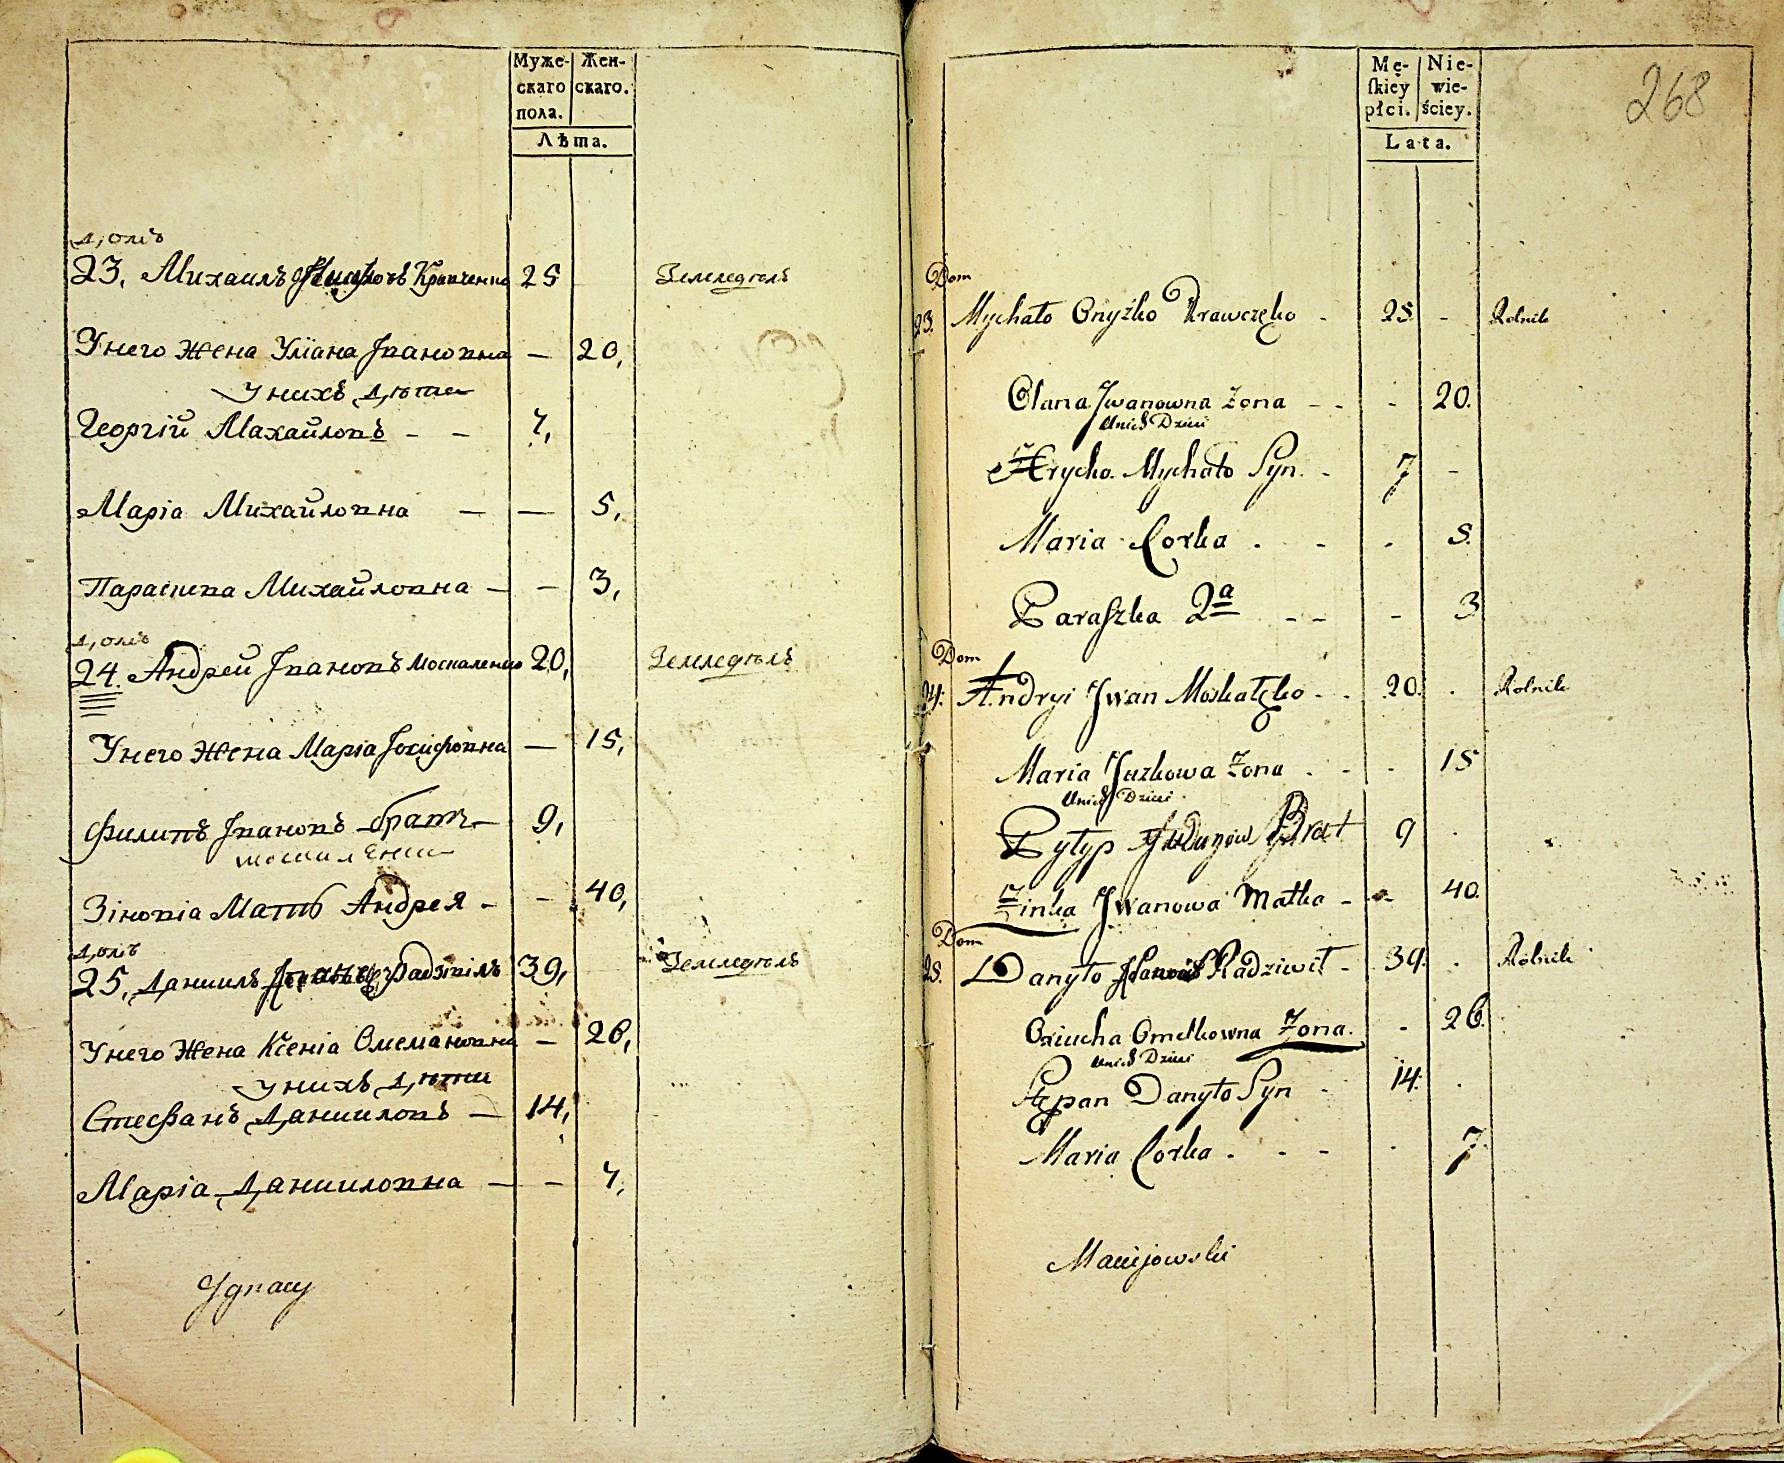 Муже- Жен-
скаго скаго.
пола.
Лѣта.
Домъ
23. Михаилъ Кравченко 25 Земледѣлъ
У него жена Улiана Iвановна — 20,
У нихъ дѣти
Георгiй Махайловъ — — 7,
Марiа Михайловна — — 5,
Параскива Михайловна — — 3,
Домъ
24. Андрей Iвановъ Москаленко 20, Земледѣлъ
У него жена Марiа Iосифовна — 15,
Филипъ Iвановъ братъ — 9,
Зiновiа Мать Андрея — — 40,
Домъ
25, Даниилъ Радзивiлъ 39, Земледѣлъ
У него жена Ксенiа Омеляновна — 26,
У нихъ дѣти
Стефанъ Данииловъ — 14,
Марiа Данииловна — — 7,
Ignacy
Mę- Nie-
ſkiey wie-
płci. ściey.
Lata.
268
Dom
23. Mychało Onyżko Krawczęko - 25 - Rolnik
Olana Jwanowna Żona - - - 20.
Unich Dzieci
Hrycko Mychało Syn. - 7 -
Maria Corka . - - 5.
Paraszka 2a - - - 3
Dom
24. Andryi Jwan Moskałęko - . 20. . Rolnik
Maria Juzkowa Żona . - - 15
Unich Dzieci
Pylyp Brat 9 .
Zinka Jwanowa Matka - - 40.
Dom
25. Danyło Radziwił - 39. . Rolnik
Oxiucha Omelkowna Żona. - 26.
Unich Dzieci
Stepan Danyło Syn - 14. .
Maria Corka . - - - 7.
Maciejowski